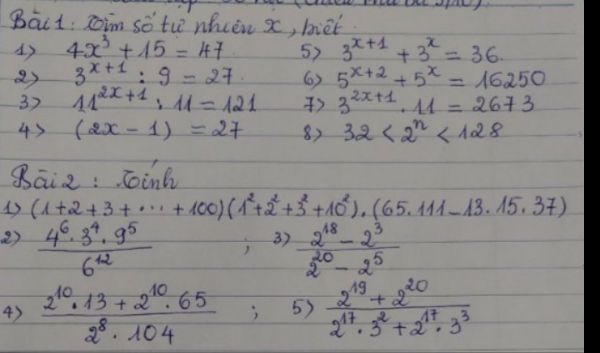 Bài 1: Tìm số tự nhiên x, biết
1) 4x³ + 15 = 47
5) 3^{x+1} + 3^x = 36.
2) 3^{x+1} : 9 = 27
6) 5^{x+2} + 5^x = 16250
3) 11^{2x+1} : 11 = 121
7) 3^{2x+1} . 11 = 2673
4) (2x - 1) = 27
8) 32 < 2^n < 128
Bài 2: Tính
1) (1+2+3+...+100)(1²+2²+3²+10²).(65.111-13.15.37)
2) \frac{4^6 . 3^4 . 9^5}{6^{12}} ; 3) \frac{2^{18} - 2^3}{2^{20} - 2^5}
4) \frac{2^{10} . 13 + 2^{10} . 65}{2^8 . 104} ; 5) \frac{2^{19} + 2^{20}}{2^{17} . 3^2 + 2^{17} . 3^3}